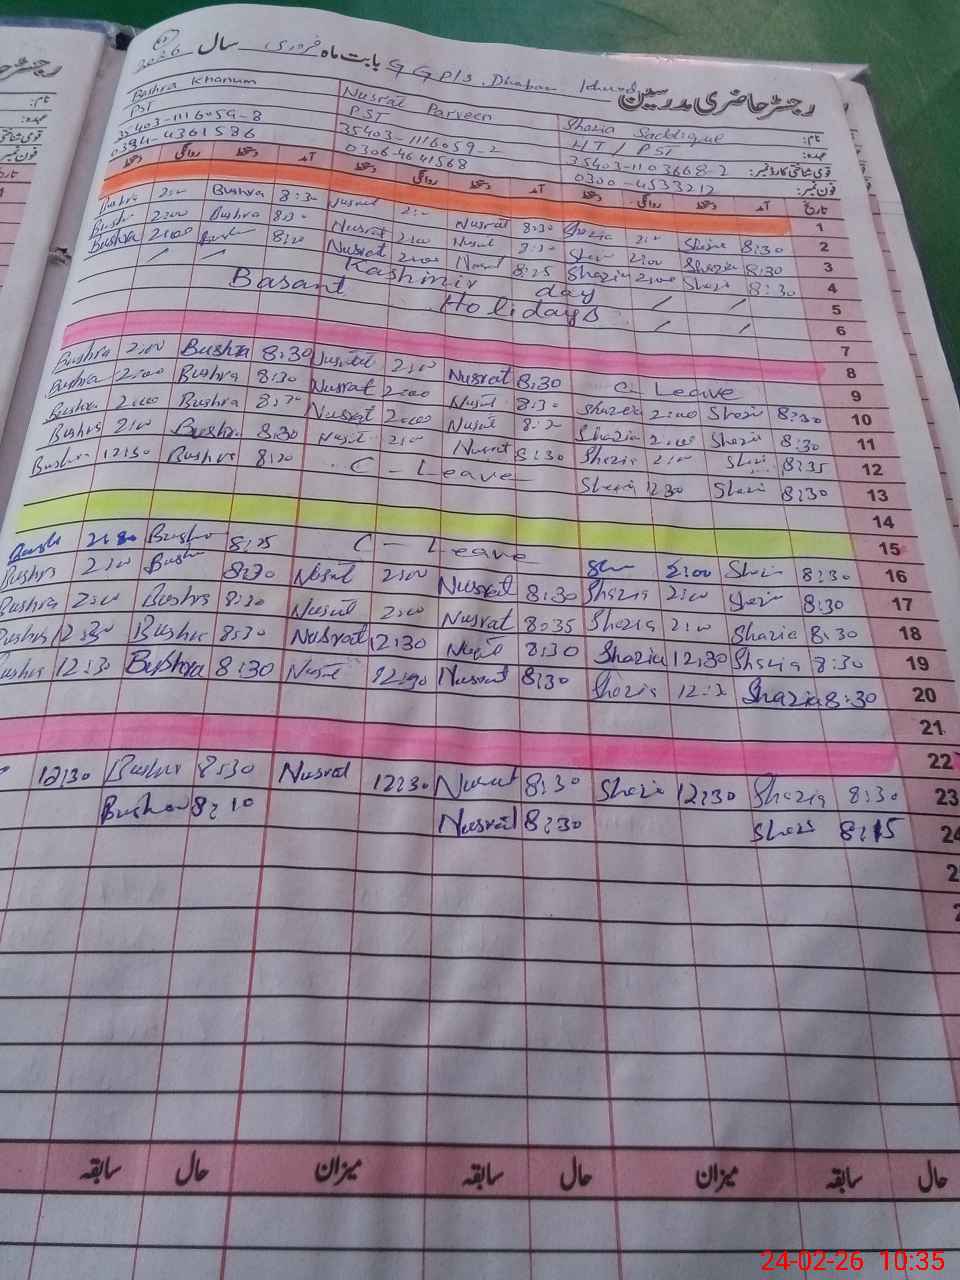 رجسٹر حاضری مدرسین GGP/S Dhaban Khurd بابت ماہ فروری سال 2026
نام: Shazia Saddique Nusrat Parveen Bushra Khanum
عہدہ: HT / PST PST PST
قومی شناختی کارڈ نمبر: 35403-1103668-2 35403-1116059-2 35403-1116059-8
فون نمبر: 0300-4533212 0306-4641568 0334-4361586
تاریخ آمد دستخط روانگی دستخط آمد دستخط روانگی دستخط دستخط روانگی دستخط
1
Bushra 2:00 Bushra 8:30 Nusrat 2:00 Nusrat 8:30 Shazia 2:00 Shazia 8:30 2
Bushra 2:00 Bushra 8:30 Nusrat 2:00 Nusrat 8:30 Shazia 2:00 Shazia 8:30 3
Bushra 2:00 Bushra 8:20 Nusrat 2:00 Nusrat 8:25 Shazia 2:00 Shazia 8:30 4
Kashmir day 5
Basant Holidays 6
7
8
Bushra 2:00 Bushra 8:30 Nusrat 2:00 Nusrat 8:30 C- Leave 9
Bushra 2:00 Bushra 8:30 Nusrat 2:00 Nusrat 8:30 Shazia 2:00 Shazia 8:30 10
Bushra 2:00 Bushra 8:30 Nusrat 2:00 Nusrat 8:20 Shazia 2:00 Shazia 8:30 11
Bushra 2:00 Bushra 8:30 Nusrat 2:00 Nusrat 8:30 Shazia 2:00 Shazia 8:35 12
Bushra 12:30 Bushra 8:20 C - Leave Shazia 12:30 Shazia 8:30 13
14
15
Bushra Bushra 8:25 C - Leave 2:00 Shazia 8:30 16
Bushra 2:00 Bushra 8:30 Nusrat 2:00 Nusrat 8:30 Shazia 2:00 Shazia 8:30 17
Bushra 2:00 Bushra 8:30 Nusrat 2:00 Nusrat 8:35 Shazia 2:00 Shazia 8:30 18
Bushra 12:30 Bushra 8:30 Nusrat 12:30 Nusrat 8:30 Shazia 12:30 Shazia 8:30 19
Bushra 12:30 Bushra 8:30 Nusrat 12:30 Nusrat 8:30 Shazia Shazia 8:30 20
21
22
12:30 Bushra 8:30 Nusrat 12:30 Nusrat 8:30 Shazia 12:30 Shazia 8:30 23
Bushra 8:10 Nusrat 8:30 Shazia 8:15 24
حال سابقہ میزان حال سابقہ میزان حال سابقہ
24-02-26 10:35